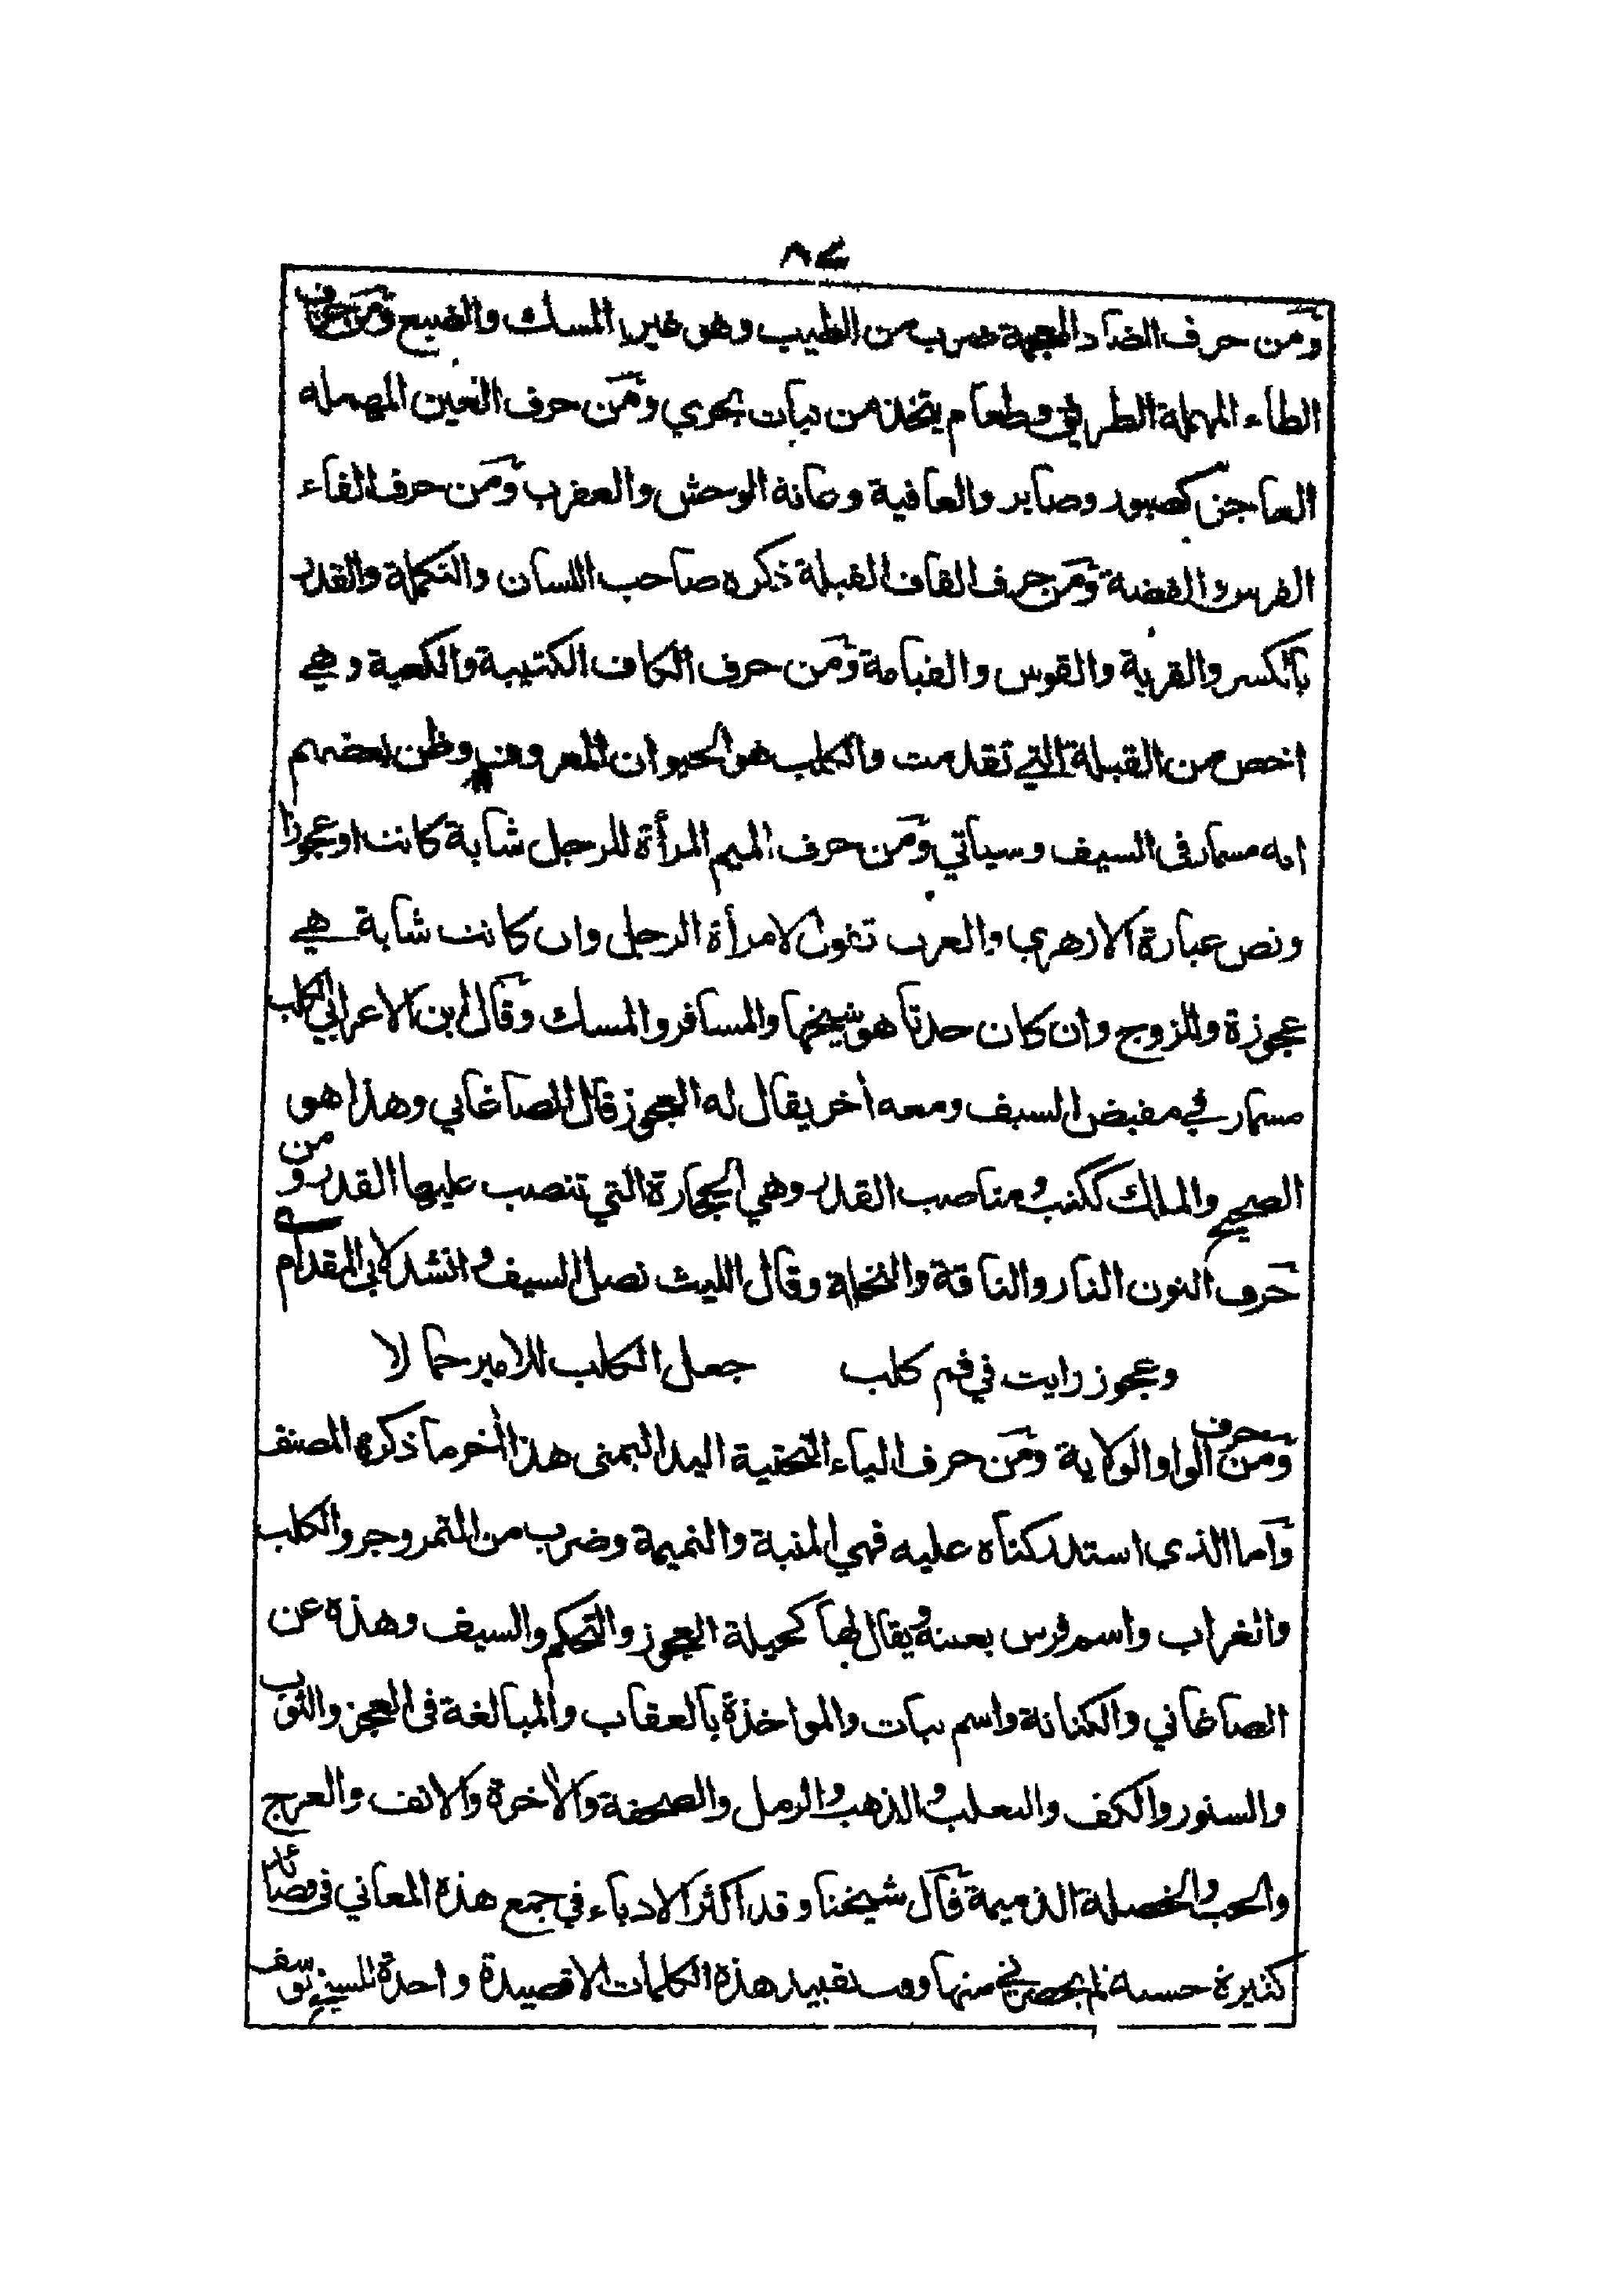 ومن حرف الضاد المعجمة ضرب من الطيب وهو غير المسك والضبع ومن حرف
الطاء المهملة الطريق وطعام يتخذ من نبات بحري ومن حرف العين المهمله
العاجز كصبور وصابر والعافية وعانة الوحش والعقرب ومن حرف الفاء
الفرس والفضة ومن حرف القاف القبلة ذكره صاحب اللسان والتكملة والقدر
بالكسر والقرية والقوس والقيامة ومن حرف الكاف الكتيبة والكعبة وهي
اخص من القبلة التي تقدمت والكلب هو الحيوان المعروف وظن بعضهم
انه مسمار فى السيف وسياتي ومن حرف الميم المرأة للرجل شابة كانت او عجوزا
ونص عبارة الازهري والعرب تقول لامرأة الرجل وان كانت شابة هي
عجوزة وللزوج وان كان حدثا هو شيخها والمسافر والمسك وقال ابن الاعرابي الكلب
مسمار في مقبض السيف ومعه أخر يقال له العجوز قال الصاغاني وهذا هو
الصحيح والملك ككتب ومناصب القدر وهي الحجارة التي تنصب عليها القدر ومن
حرف النون النار والناقة والنخلة وقال الليث نصل السيف وانشد لابي المقدام
وعجوز رايت في فم كلب جعل الكلب للامير حمالا
ومن حرف الواو الولاية ومن حرف الياء التحتية اليد اليمنى هذا أخر ما ذكره المصنف
وأما الذي استدركناه عليه فهي المنية والنميمة وضرب من التمر وجرو الكلب
والغراب واسم فرس بعينه ويقال لها كحيلة العجوز والتحكم والسيف وهذه عن
الصاغاني والكنانة واسم نبات والمواخذة بالعقاب والمبالغة فى العجز والثوب
والسنور والكف والثعلب والذهب والرمل والصحفة والأخرة والانف والعرج
والحب والخصلة الذميمة قال شيخنا وقد اكثر الادباء في جمع هذه المعاني فى قصائد
كثيرة حسنة لم يحضرني منها وقت تقييد هذه الكلمات الا قصيدة واحدة للشيخ يوسف